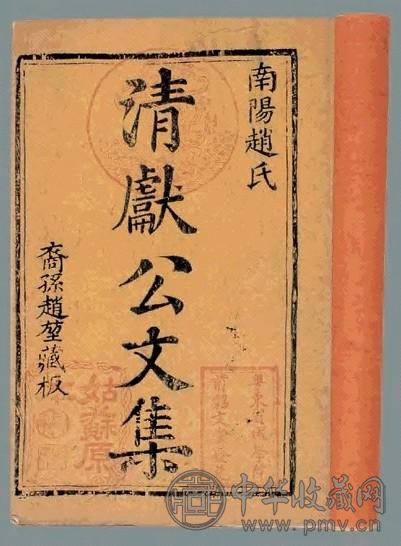 南陽趙氏
清獻公文集
裔孫趙堃藏板
姑蘇原
中华收藏网
www.pmv.cn